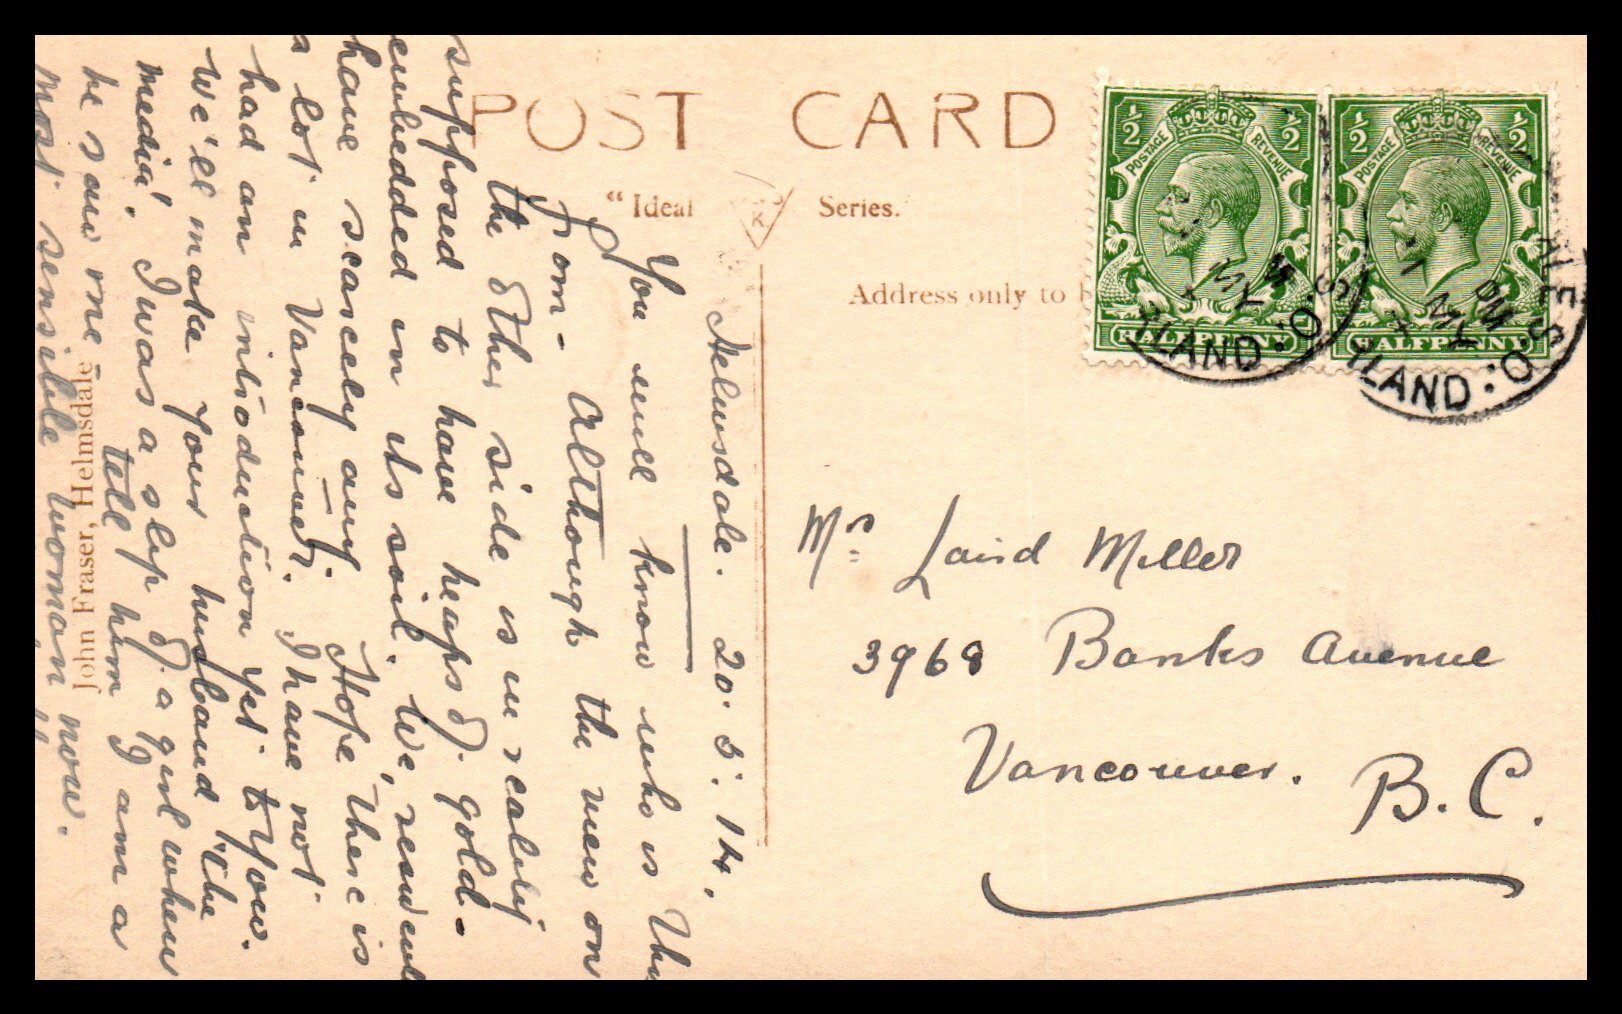 POST CARD
"Ideal Series.
Address only to b
½ ½
POSTAGE REVENUE
HALFPENNY
½ ½
POSTAGE REVENUE
HALFPENNY
MY
LAND: O.S
PM
MY
LAND: O. ALES
Helmsdale. 20. 5. 14,
You will know who is this
from - Although the view on
the other side is in reality
supposed to have heaps of gold -
embedded in its soil. We, resident
have scarcely any. Hope there is
a lot in Vancouver. I have not
had an introduction yet to you.
We'll make your husband "the
media'. I was a slip of a girl when
he saw me tell him I am a
most sensible woman now.
Mrs Laird Miller
3968 Banks Avenue
Vancouver.
B.C.
John Fraser, Helmsdale